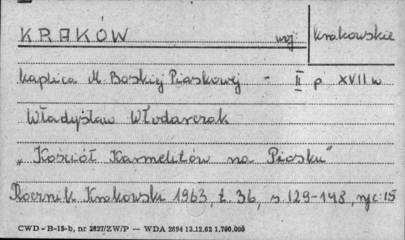 KRAKÓW woj. krakowskie
kaplica M. Boskiej Piaskowej - II p XVII w
Władysław Włodarczak
„Kościół Karmelitów na Piasku"
Rocznik Krakowski 1963, t. 36, s. 129-148, ryc. 15
CWD - B-15-b, nr 2827/ZW/P — WDA 2694 13.12.62 1.700.000